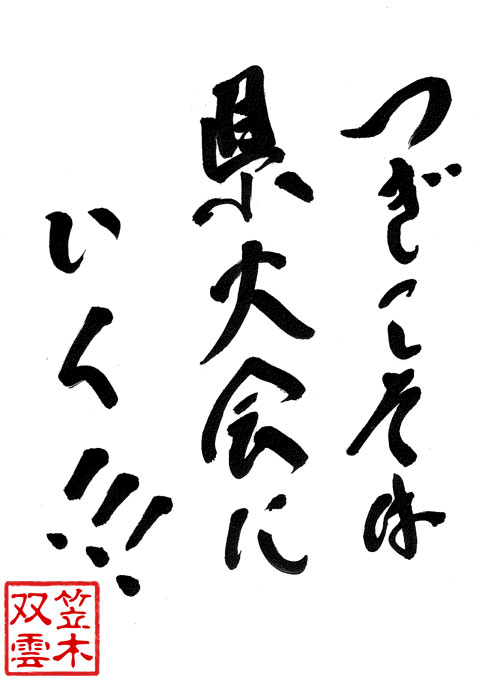 つぎこそは
県大会に
いく!!!
笠木
双雲